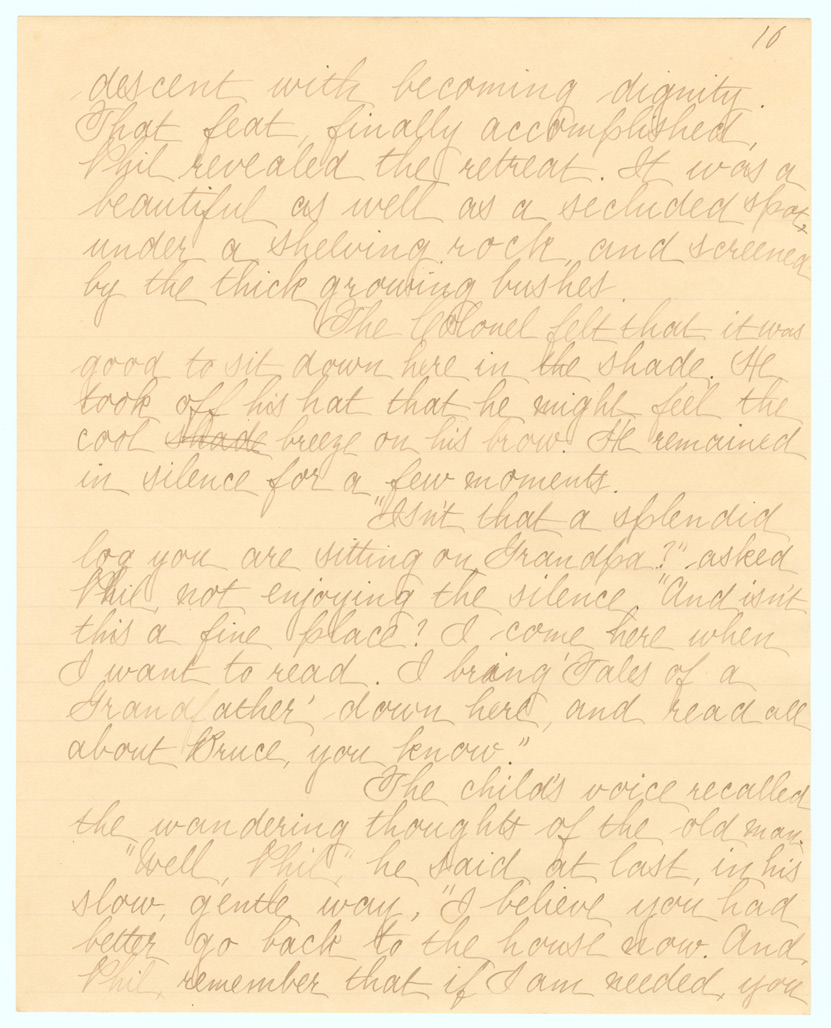 16
descent with becoming dignity.
That feat, finally accomplished,
Phil revealed the retreat. It was a
beautiful as well as a secluded spot,
under a shelving rock, and screened
by the thick growing bushes.
The Colonel felt that it was
good to sit down here in the shade. He
took off his hat that he might feel the
cool shade breeze on his brow. He remained
in silence for a few moments.
"Isn't that a splendid
log you are sitting on, Grandpa?" asked
Phil, not enjoying the silence. "And isn't
this a fine place? I come here when
I want to read. I bring 'Tales of a
Grandfather' down here, and read all
about Bruce, you know."
The child's voice recalled
the wandering thoughts of the old man.
"Well, Phil," he said at last, in his
slow, gentle way, "I believe you had
better go back to the house now. And,
Phil, remember that if I am needed, you